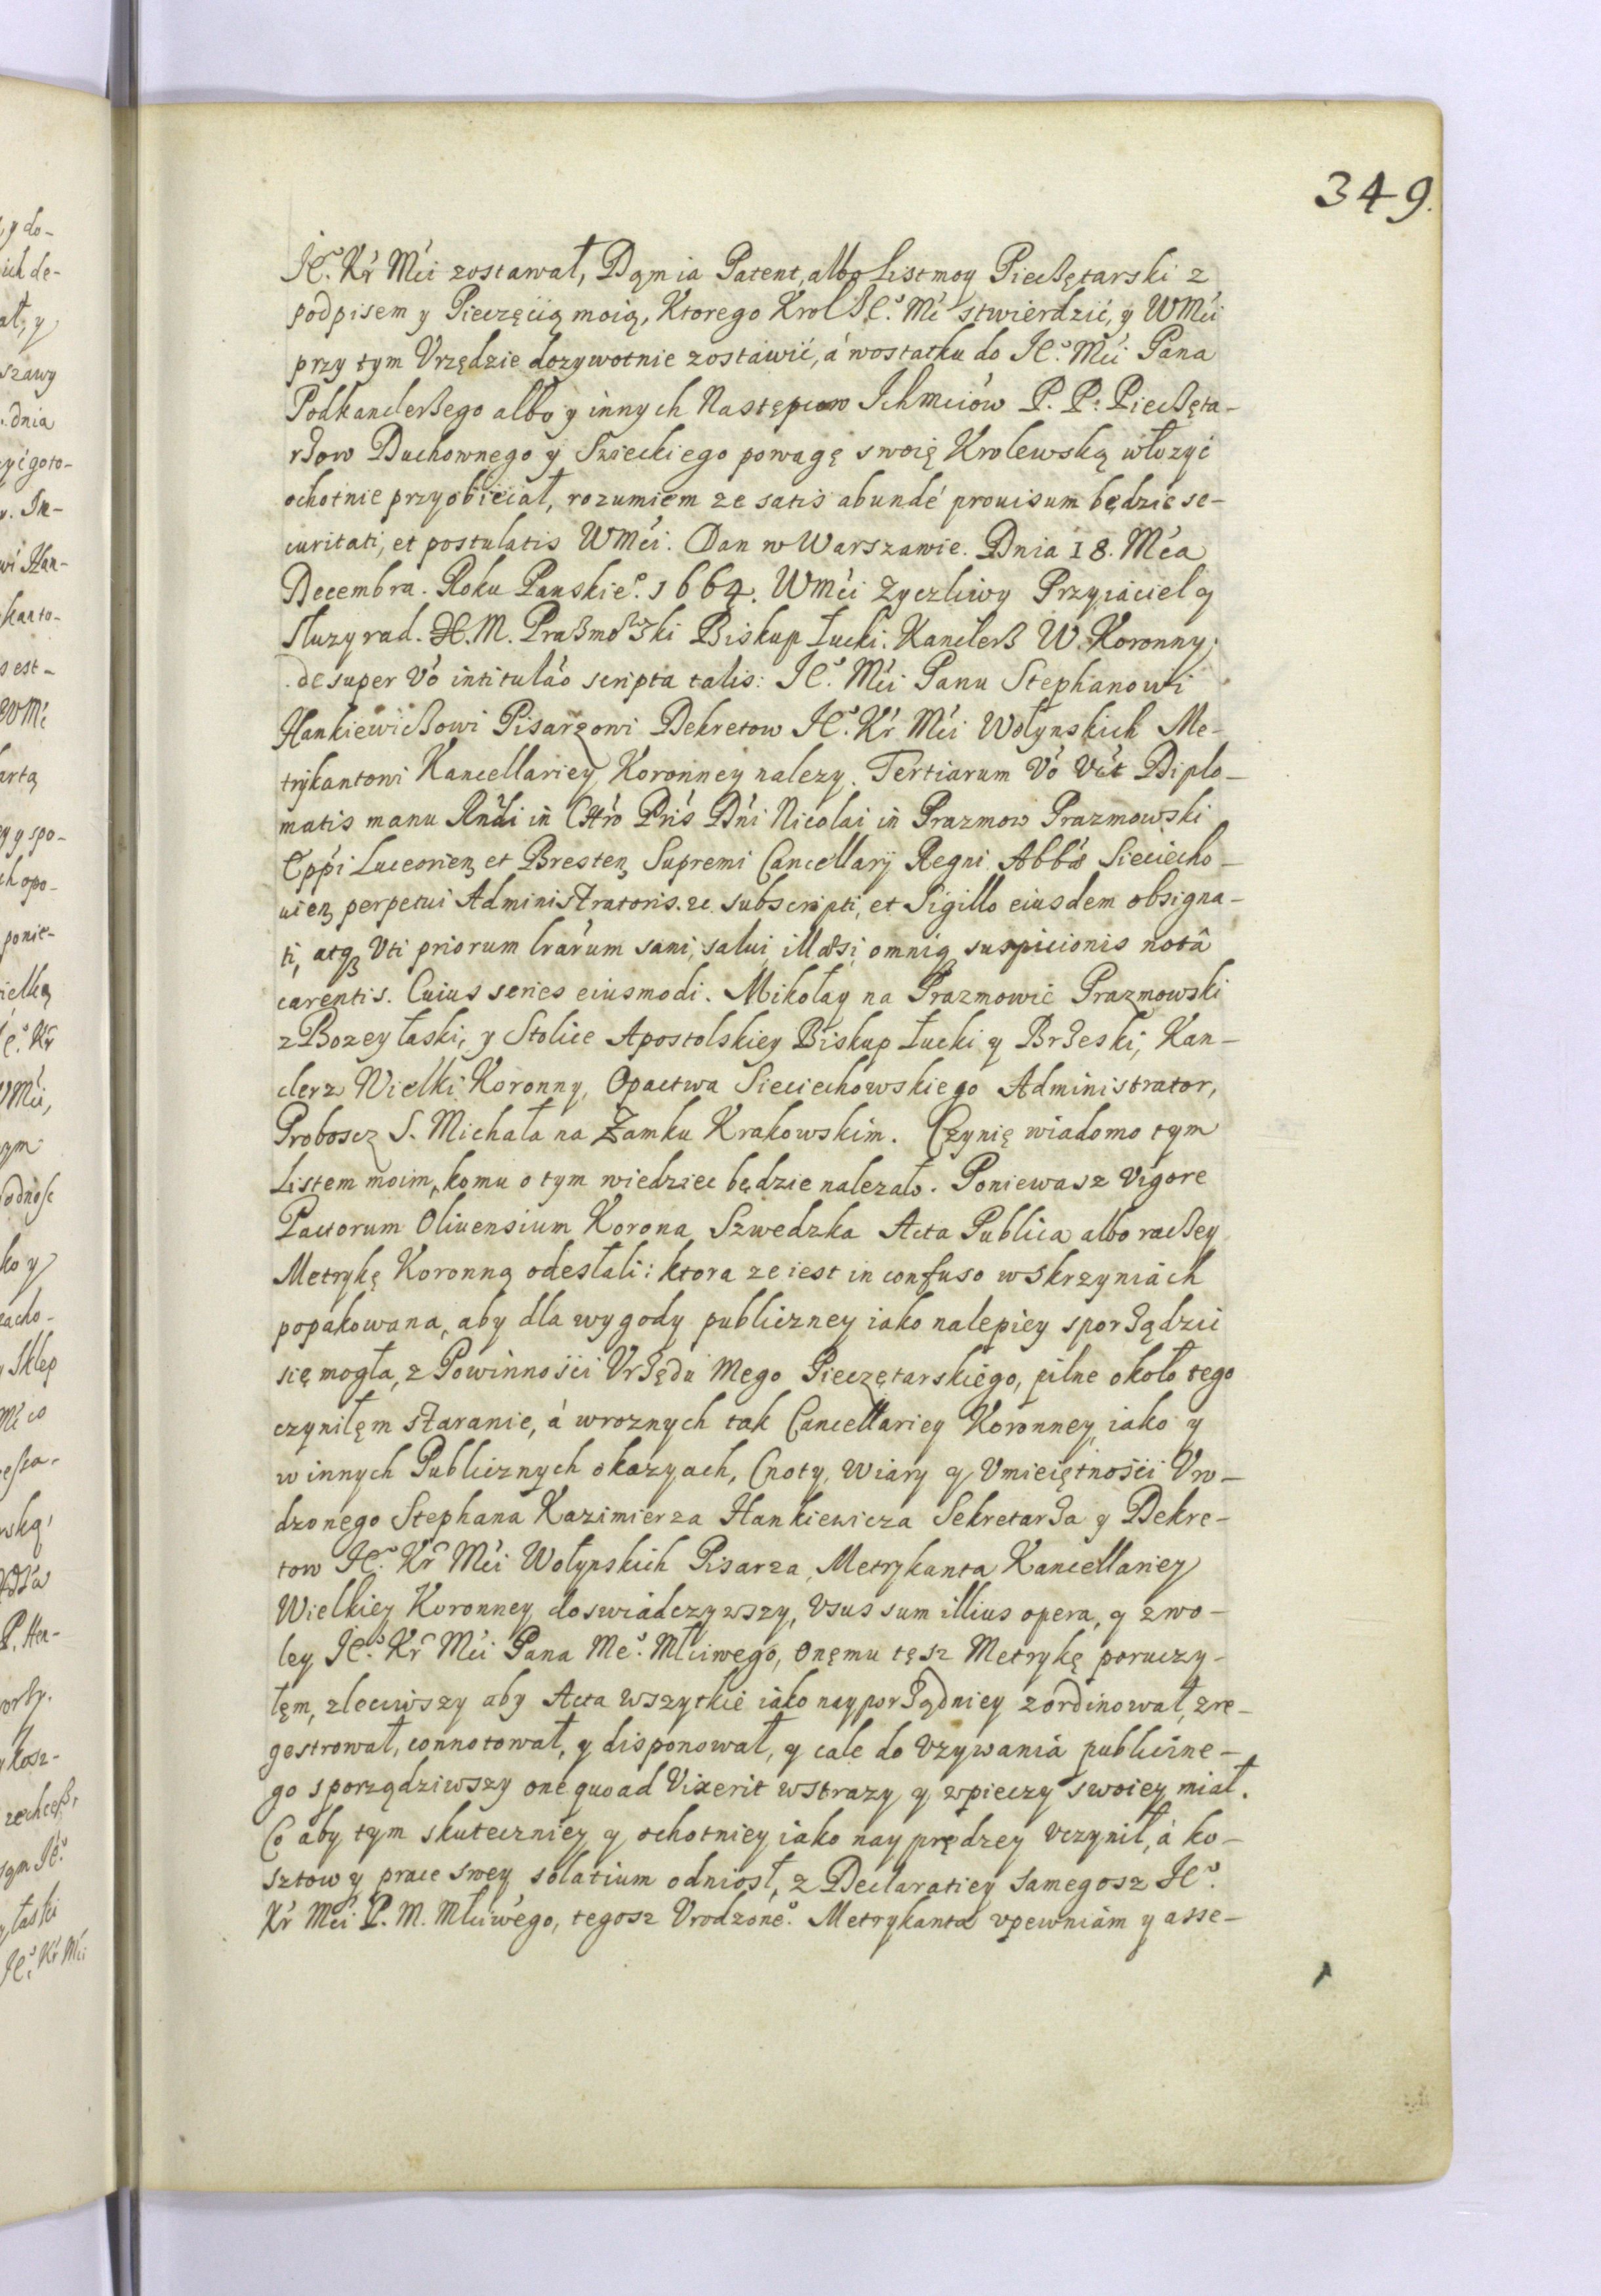 349.
Je͠o. Kr̃ Mći zostawał, Dąm ia Patent, albo List moy Pieczętarski z
podpisem y Pieczęcią moią, Ktorego Krol Je͠o. Mć stwierdzić, y WMći
przy tym Vrzędzie dozywotnie zostáwić, á wostatku do Je͠o. Mći Pana
Podkanclerßego albo y innych Następcow Ichmciów P. P. Pieczęta-
rzow Duchownego y Swieckiego powagę swoię Krolewską włozyć
ochotnie przyobiecał, rozumiem ze satis abundé prouisum będzie se-
curitati, et postulatis WMći. Dan w Warszawie. Dnia 18. Mća
Decembra. Roku Panskie͠o. 1664. WMći Zyczliwy Przyiáciel y
Sluzyrad. X. M. Praßmowski Biskup Łucki. Kanclerß W. Koronny.
desuper Vó intituláo scripta talis: Je͠o. Mći Panu Stephanowi
Hankiewiczowi Pisarzowi Dekretow Je͠o. Kr̃ Mći Wołynskich Me-
trykantowi Kancellariey Koronney nalezy. Tertiarum Vó Vćt Diplo-
matis manu Rńdi iñ Chró Pris Dńi Nicolai iñ Prazmow Prazmowski
Eppi Luceorieñ et Bresteñ Supremi Cancellarÿ Regni Abbá Sieciecho-
uieñ perpetui Administratoris. ꝛc. subscripti, et Sigillo eiusdem obsigna-
ti, atqꝫ Vti priorum lrárum sani, salui, illæsi omniq suspicionis notâ
carentis. Cuius series eiusmodi. Mikołay na Prazmowie Prazmowski
z Bozey łaski, y Stolice Apostolskiey Biskup Łucki y Brzeski, Kan-
clerz Wielki Koronny, Opactwa Sieciechowskiego Administrator,
Proboscz S. Michała na Zamku Krakowskim. Czynię wiadomo tym
Listem moim, komu o tym wiedziec będzie nalezało. Poniewasz Vigore
Pactorum Oliuensium Korona Szwedzka Acta Publica albo raczey
Metrykę Koronną odesłali: ktora ze iest in confuso w skrzyniách
popakowana, aby dla wygody publiczney iako nalepiey sporządzić
się mogła, z Powinnośći Vrzędu Mego Pieczętarskiego, pilne około tego
czyniłęm staranie, á wroznych tak Cancellariey Koronney, iako y
w innych Publicznych okazyach, Cnoty, Wiary y Vmieiętnośći Vro-
dzonego Stephana Kazimierza Hankiewicza Sekretarza y Dekre-
tow Je͠o. Kr̃ Mći Wołynskich Pisarza, Metrykanta Kancellariey
Wielkiey Koronney doswiádczywszy, Vsus sum illius opera, y zwo-
ley Je͠o. Kr̃ Mći Pana Me͠o. Młciwego, onęmu tęsz Metrykę poruczy-
łęm, zleciwszy aby Acta wszytkie iako nayporządniey zordinował, zre-
gestrował, connotował, y disponował, y cale do Vzywania publiczne-
go sporządziwszy one quoad Vixerit wstrazy y wpieczy swoiey miał.
Co aby tym skuteczniey y ochotniey iako nayprędzey Vczynił, á ko-
sztow y prace swey solatium odniosł, z Declaratiey samegosz Je͠o.
Kr̃ Mći P. M. Młciwego, tegosz Vrodzone͠o. Metrykanta vpewniám y asse-